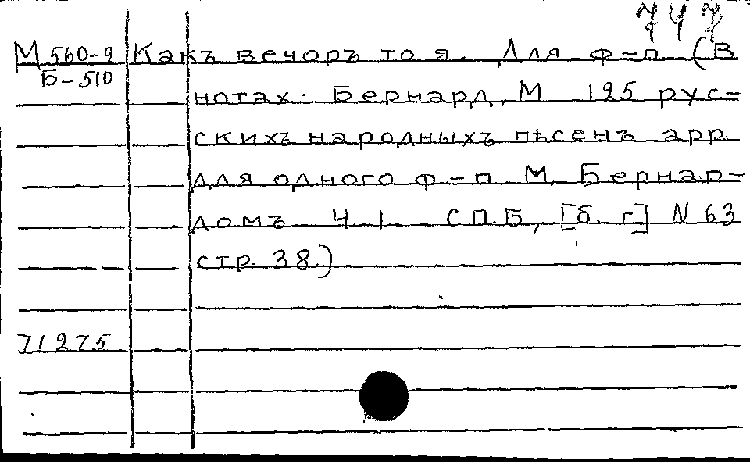 747
М 560-9 Какъ вечоръ то я. Для ф-п. (В
Б-510
нотах: Бернард, М 125 рус-
скихъ народныхъ пѣсенъ арр
для одного ф-п М. Бернар-
домъ Ч 1 СПБ, [б. г] N 63
стр. 38.)
71275